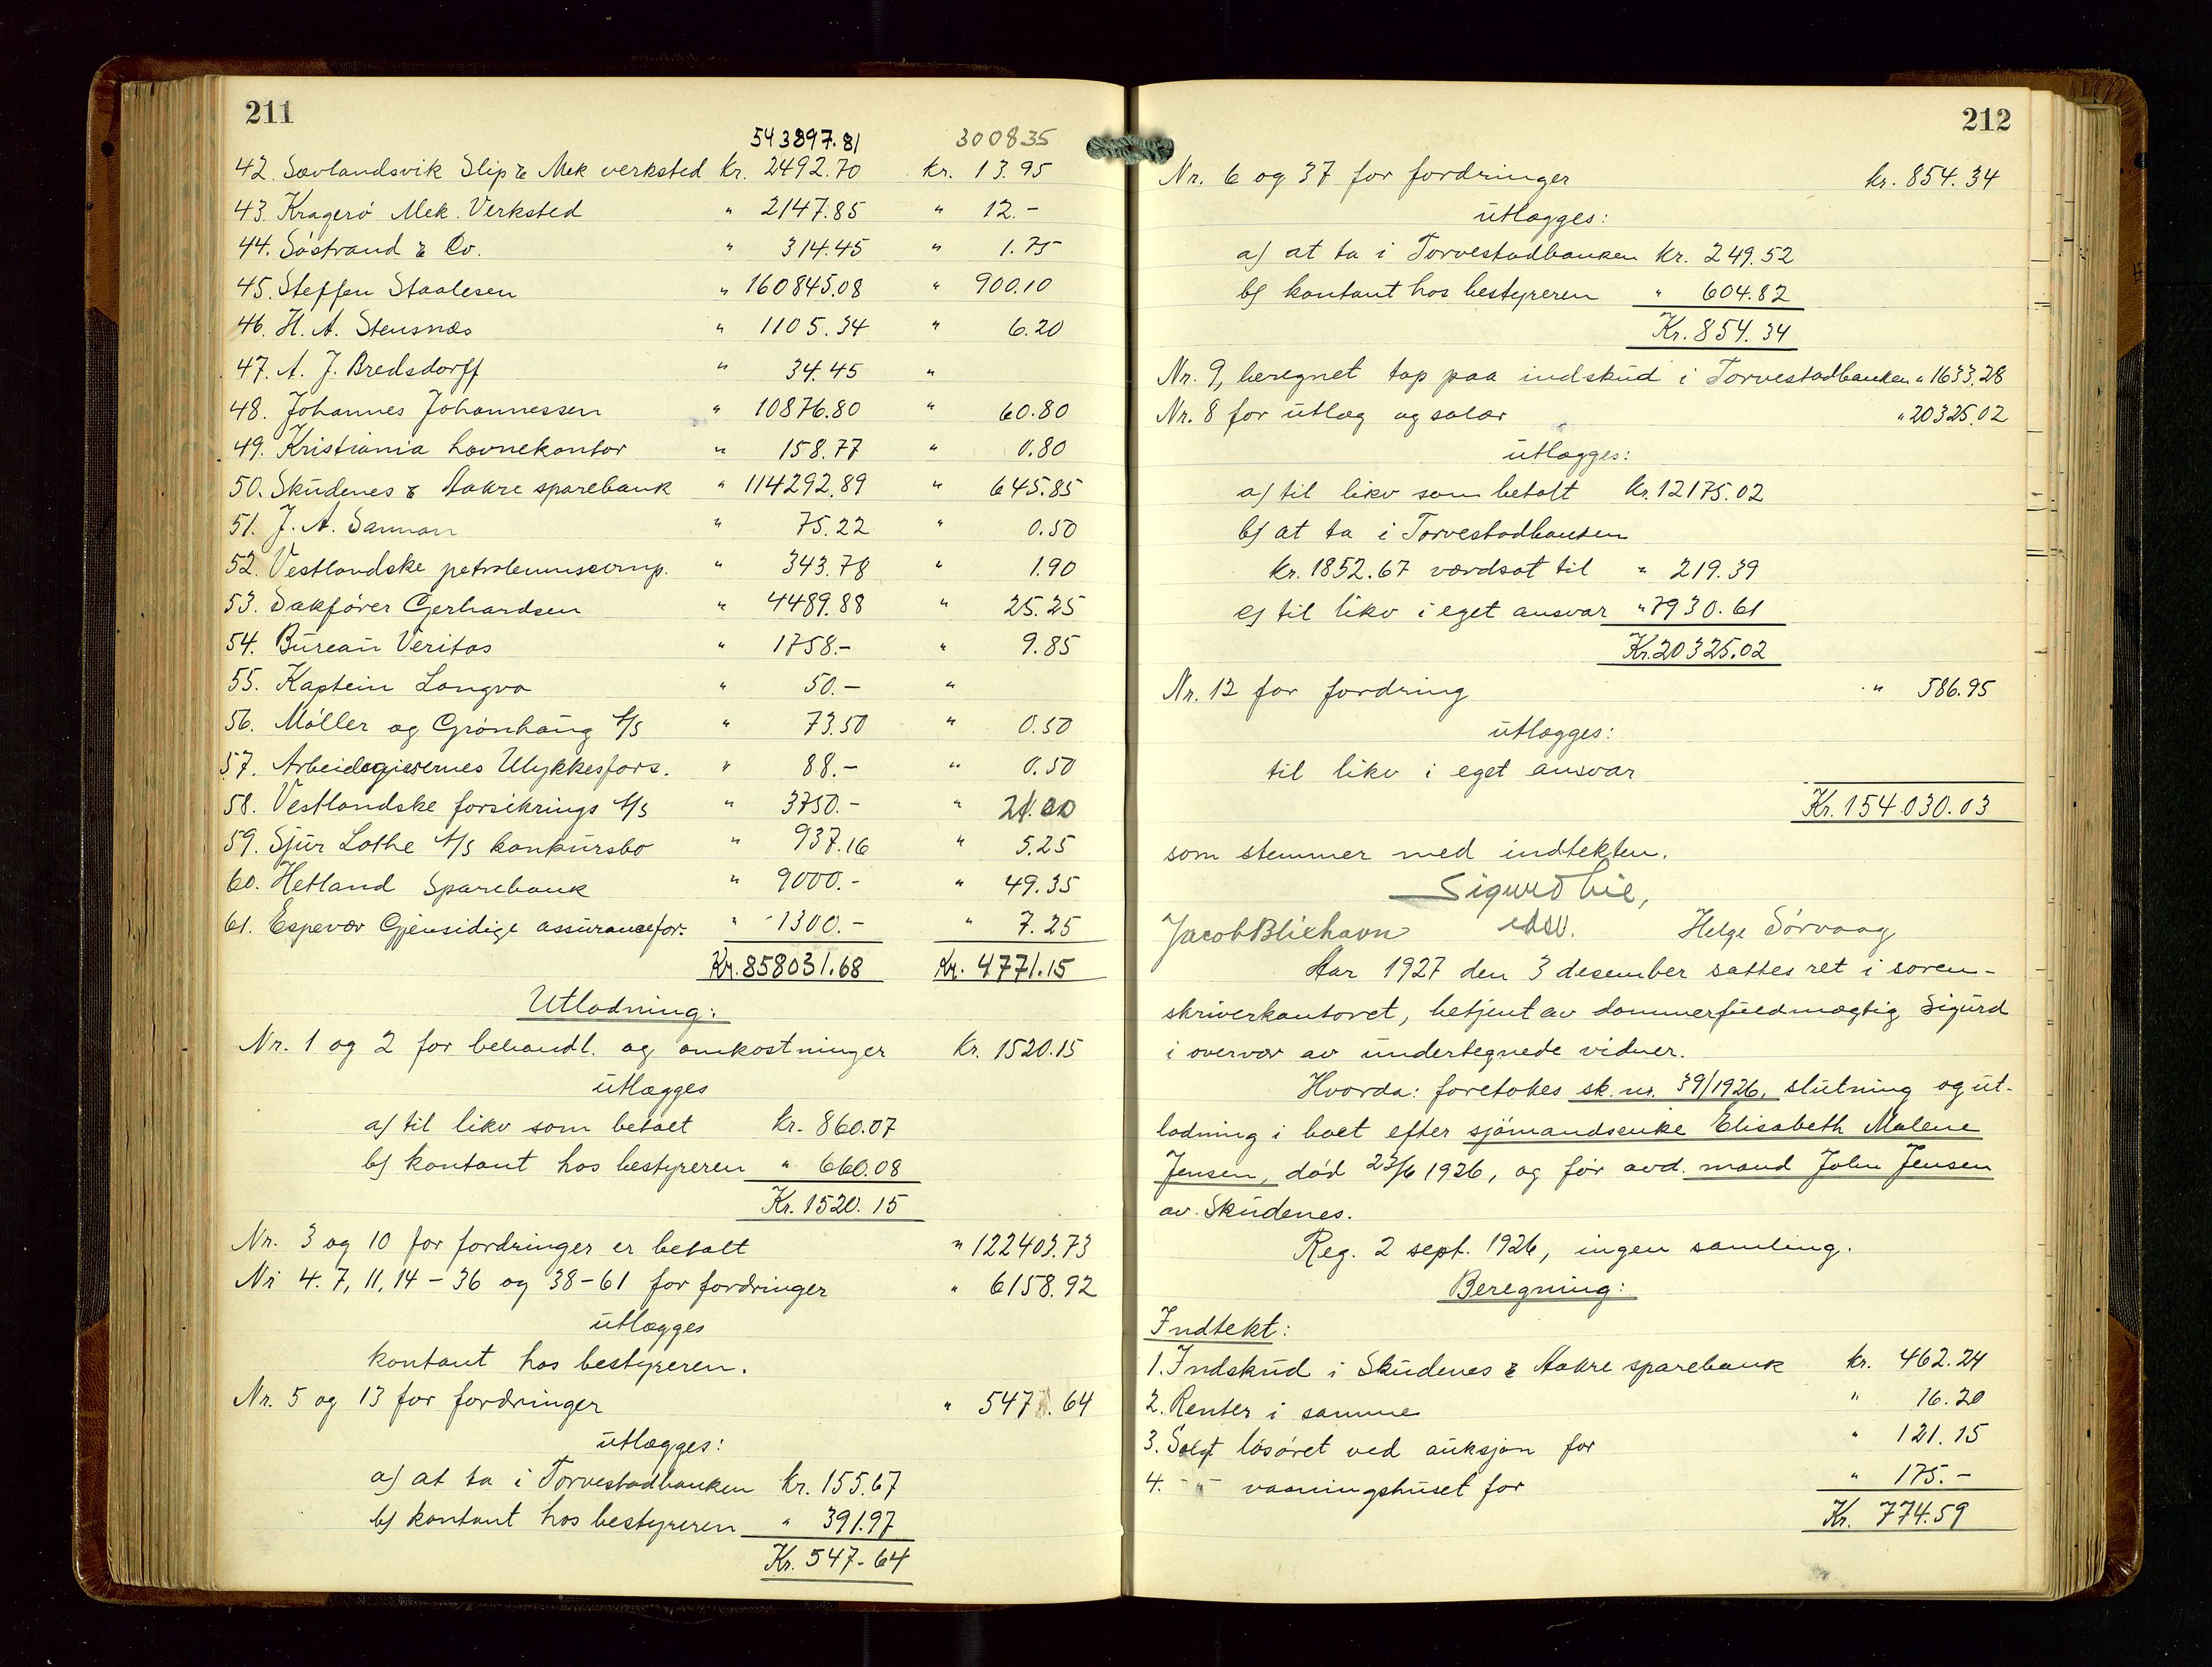 211
543897.81 300835
42. Sævlandsvik Slip & Mek verksted Kr. 2492.70 Kr. 13.95
43. Kragerö Mek. Verksted " 2147.85 " 12.-
44. Söstrand & Co. " 314.45 " 1.75
45. Steffen Staalesen " 160845.08 " 900.10
46. H. A. Stensnæs " 1105.34 " 6.20
47. A. J. Bredsdorff " 34.45 "
48. Johannes Johannessen " 10876.80 " 60.80
49. Kristiania havnekontor " 158.77 " 0.80
50. Skudenes & Aakre sparebank " 114292.89 " 645.85
51. J. A. Samuon " 75.22 " 0.50
52. Vestlandske petroleumscomp. " 343.78 " 1.90
53. Sakförer Gerhardsen " 4489.88 " 25.25
54. Bureau Veritas " 1758.- " 9.85
55. Kaptein Langva " 50.- "
56. Möller og Grönhaug A/S " 73.50 " 0.50
57. Arbeidsgivernes Ulykkesfors. " 88.- " 0.50
58. Vestlandske forsikrings A/S " 3750.- " 21.00
59. Sjur Lothe A/S konkursbo " 937.16 " 5.25
60. Hetland Sparebank " 9000.- " 49.35
61. Espevær Gjensidige assurancefor. " 1300.- " 7.25
Kr. 858031.68 Kr. 4771.15
Utlodning:
Nr. 1 og 2 for behandl. og omkostninger Kr. 1520.15
utlægges
a) til likv som betalt Kr. 860.07
b) kontant hos bestyreren " 660.08
Kr. 1520.15
Nr. 3 og 10 for fordringer er betalt " 122403.73
Nr 4. 7, 11, 14 - 36 og 38-61 for fordringer " 6158.92
utlægges
kontant hos bestyreren.
Nr. 5 og 13 for fordringer " 547.64
utlægges:
a) at ta i Torvestadbanken Kr. 155.67
b) kontant hos bestyreren " 391.97
Kr. 547-64
212
Nr. 6 og 37 for fordringer kr. 854.34
utlægges:
a) at ta i Torvestadbanken Kr. 249.52
b) kontant hos bestyreren " 604.82
Kr. 854.34
Nr. 9, beregnet tap paa indskud i Torvestadbanken " 1633.28
Nr. 8 for utlæg og salær " 20325.02
utlægges:
a) til likv som betalt Kr. 12175.02
b) at ta i Torvestadbanken
kr. 1852.67 værdsat til " 219.39
c) til likv i eget ansvar " 7930.61
Kr. 20325.02
Nr. 12 for fordring " 586.95
utlægges:
til likv i eget ansvar
Kr. 154.030.03
som stemmer med indtekten.
Sigurd Lie,
edsv.
Jacob Blikhavn Helge Sörvaag
Aar 1927 den 3 desember sattes ret i soren-
skriverkontoret, betjent av dommerfuldmægtig Sigurd
i overvær av undertegnede vidner.
Hvorda: foretokes sk. nr. 39/1926, slutning og ut-
lodning i boet efter sjömandsenke Elisabeth Malene
Jensen, död 23/6 1926, og för avd. mand John Jensen
av Skudenes.
Reg. 2 sept. 1926, ingen samling.
Beregning:
Indtekt:
1. Indskud i Skudenes & Aakre sparebank kr. 462.24
2. Renter i samme " 16.20
3. Solgt lösöret ved auksjon for " 121.15
4. - " - vaaningshuset for " 175.-
Kr. 774.59